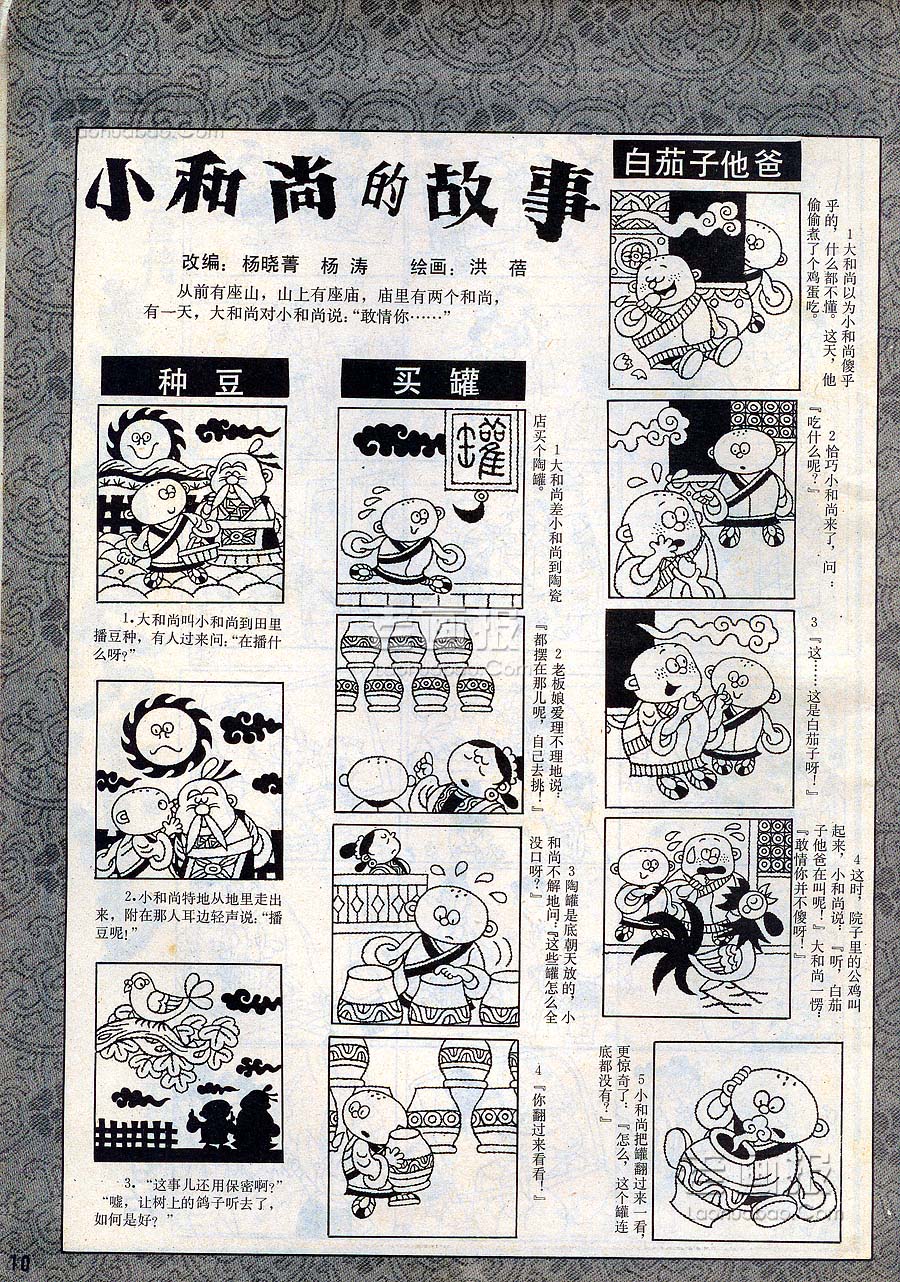 小和尚的故事
改编：杨晓菁 杨涛 绘画：洪蓓
从前有座山，山上有座庙，庙里有两个和尚，
有一天，大和尚对小和尚说：“敢情你……”
种豆
1.大和尚叫小和尚到田里
播豆种，有人过来问：“在播什
么呀？”
2.小和尚特地从地里走出
来，附在那人耳边轻声说：“播
豆呢！”
3.“这事儿还用保密啊？”
“嘘，让树上的鸽子听去了，
如何是好？”
买罐
罐
1大和尚差小和尚到陶瓷
店买个陶罐。
2老板娘爱理不理地说：
『都摆在那儿呢，自己去挑！』
3陶罐是底朝天放的，小
和尚不解地问：『这些罐怎么全
没口呀？』
4『你翻过来看看！』
5小和尚把罐翻过来一看，
更惊奇了：『怎么，这个罐连
底都没有？』
白茄子他爸
1大和尚以为小和尚傻乎
乎的，什么都不懂。这天，他
偷偷煮了个鸡蛋吃。
2恰巧小和尚来了，问：
『吃什么呢？』
3『这……这是白茄子呀！』
4这时，院子里的公鸡叫
起来，小和尚说：『听，白茄
子他爸在叫呢！』大和尚一愣：
『敢情你并不傻呀！』
老画报
laohuabao.Com
10